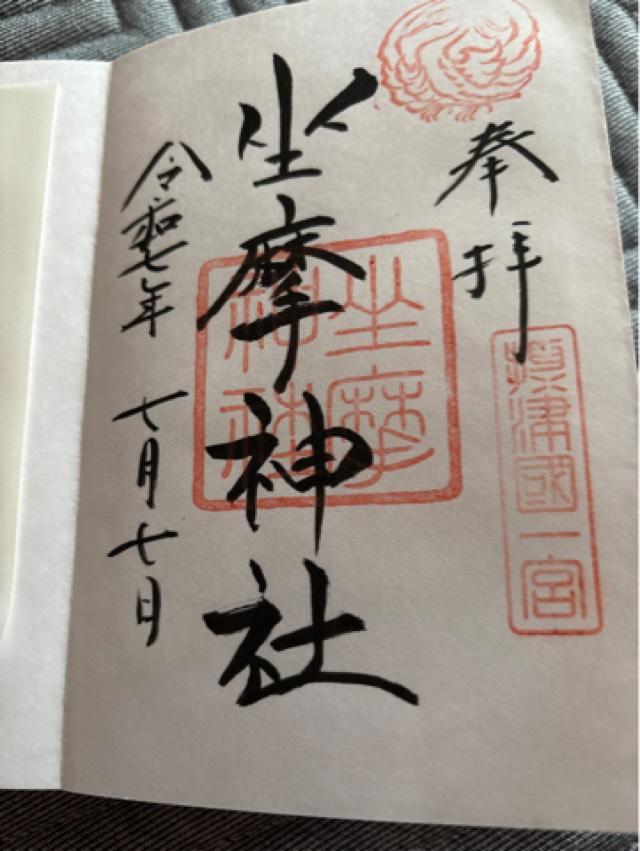 奉拝
攝津國一宮
坐摩神社
坐摩神社
令和七年 七月七日